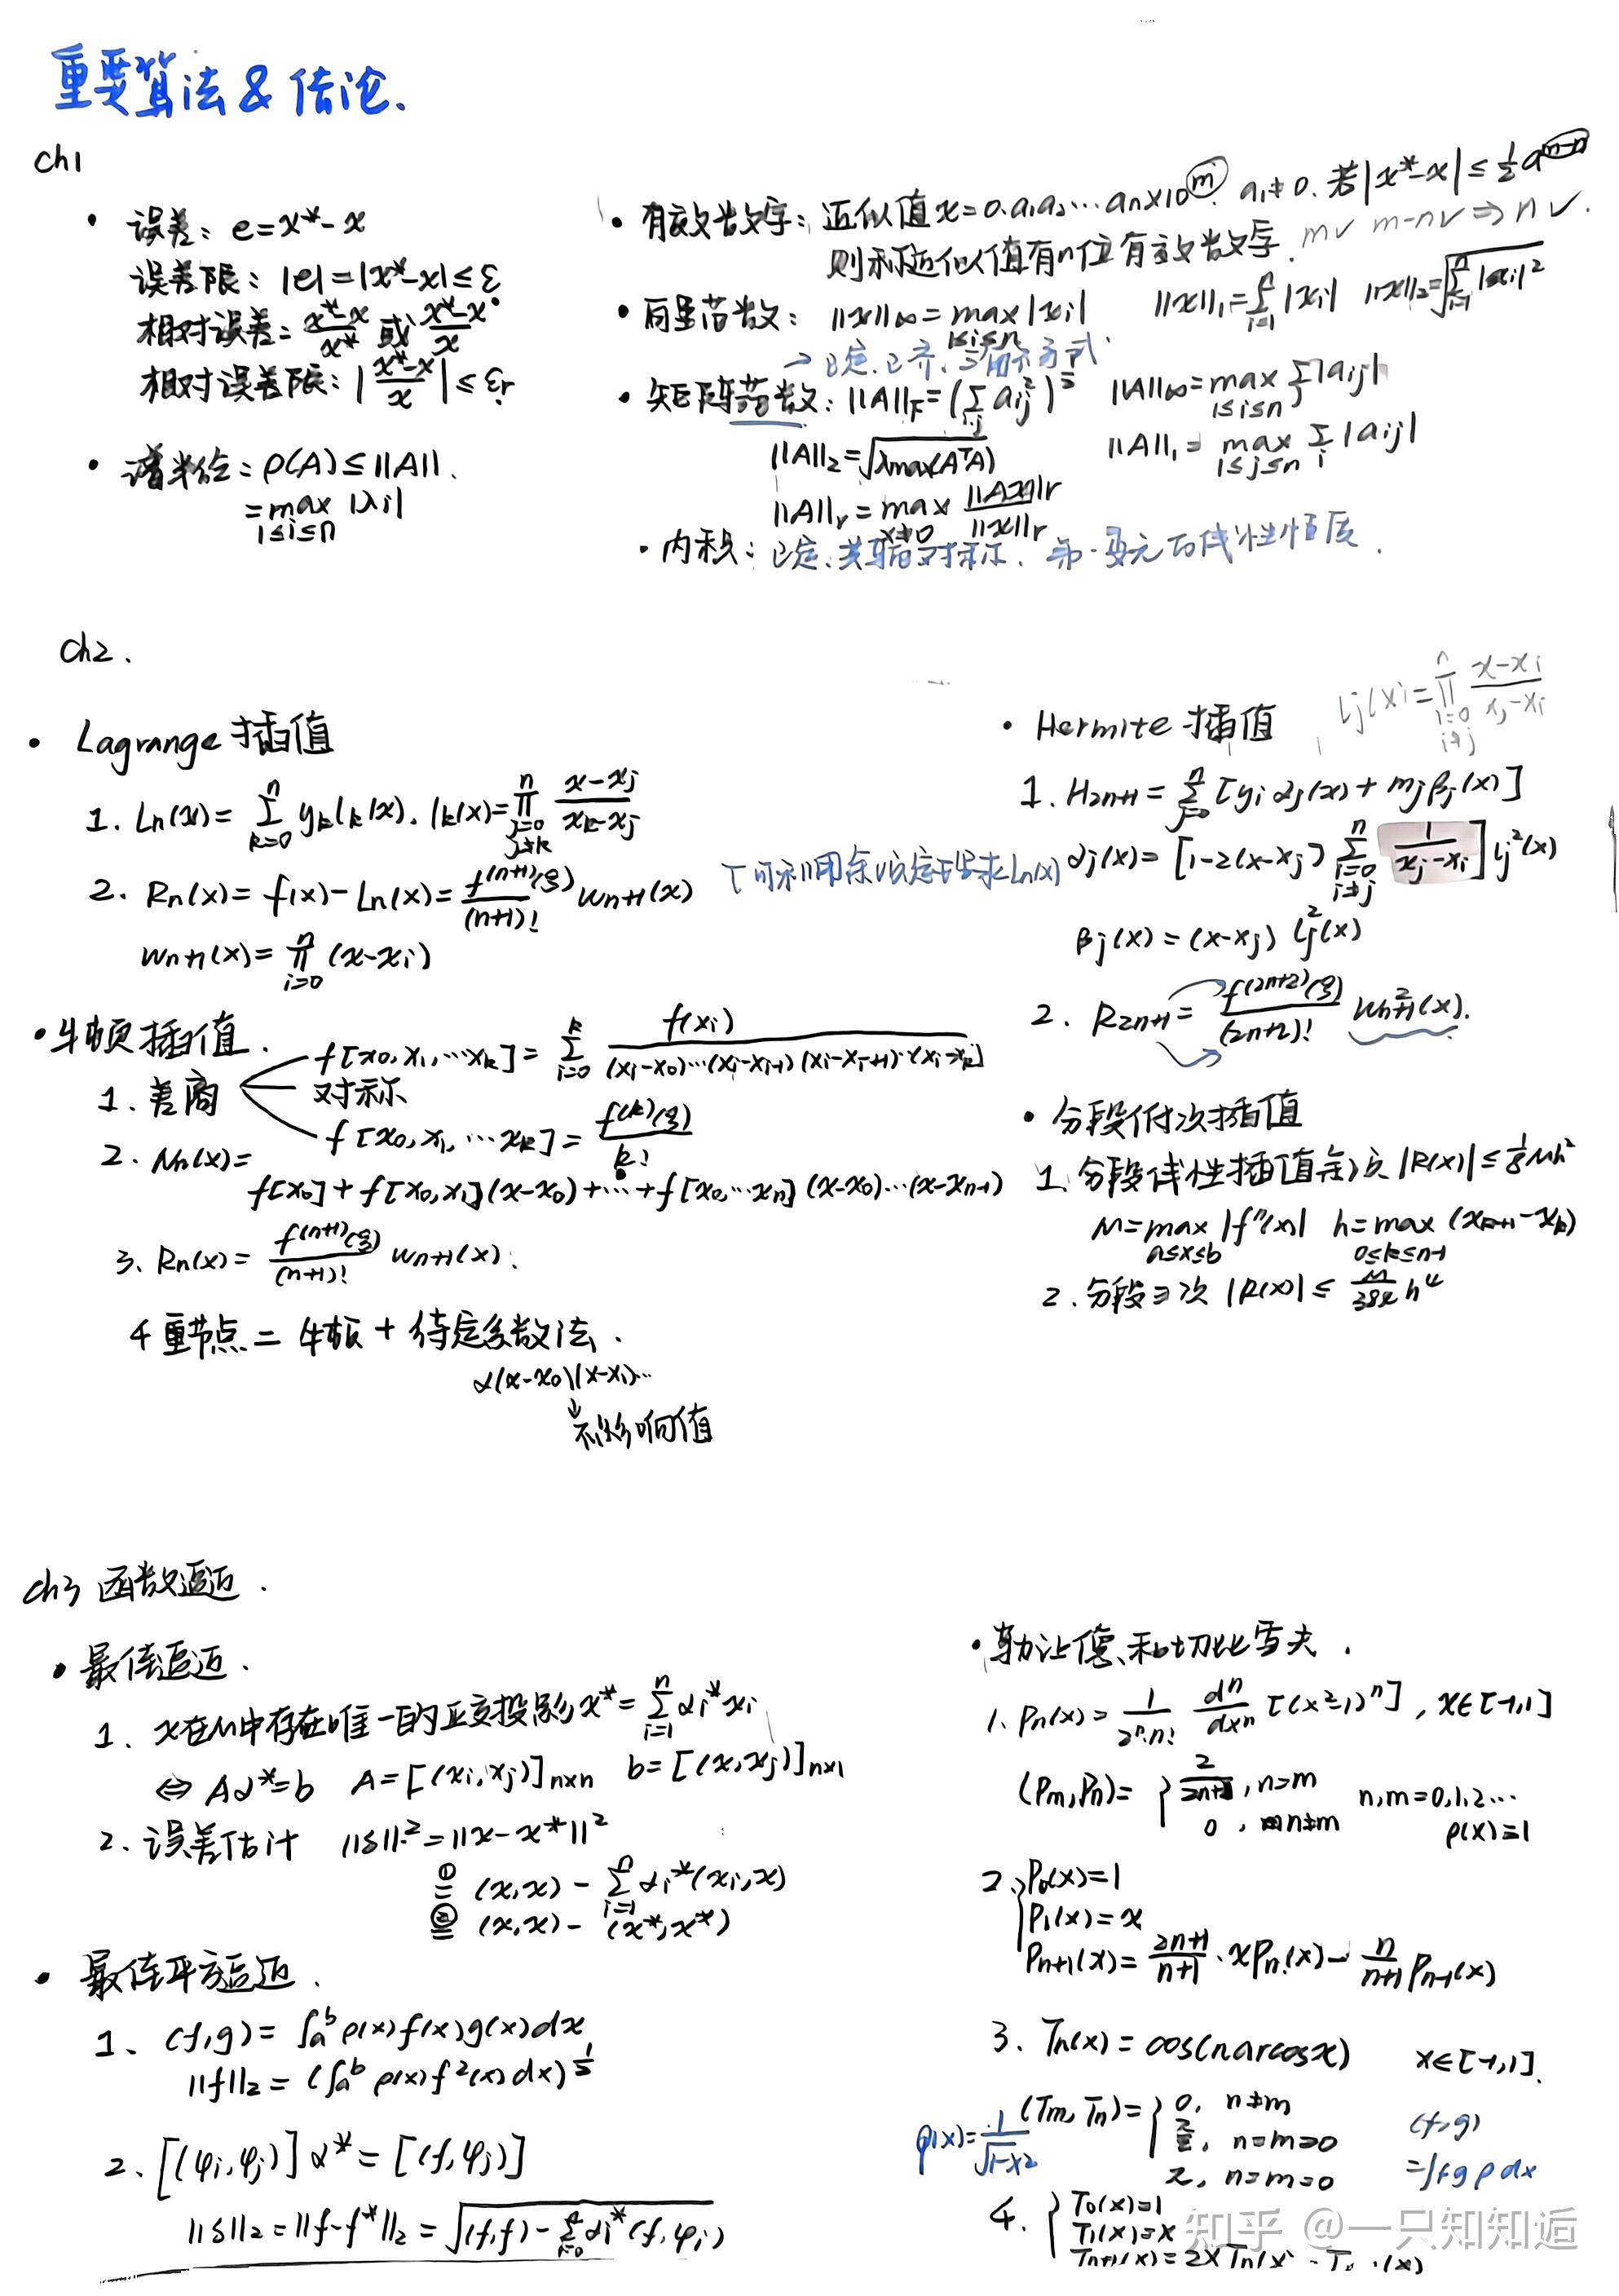 重要算法&结论.
ch1
• 误差: e=x*-x
误差限: |e|=|x*-x|≤ε
相对误差= (x*-x)/x* 或 (x*-x)/x
相对误差限: |(x*-x)/x|≤εr
• 谱半径: ρ(A)≤||A||.
=max |λi|
1≤i≤n
• 有效数字: 近似值x=0.a1a2…an×10^m. a1≠0. 若|x*-x|≤½a^(m-n)
则称近似值有n位有效数字. m✓ m-n✓⇒n✓.
• 向量范数: ||x||∞=max|xi| ||x||1=Σ|xi| ||x||2=√(Σ|xi|²)
1≤i≤n
→正定.正齐.三角不等式.
• 矩阵范数: ||A||F=(Σ aij²)^½ ||A||∞=max Σ|aij|
i,j 1≤i≤n j
||A||2=√(λmax(AᵀA)) ||A||1=max Σ|aij|
1≤j≤n i
||A||r=max ||Ax||r/||x||r
x≠0
• 内积: 正定.共轭对称. 第一变元的线性性质.
ch2.
• Lagrange插值
1. Ln(x)=Σ(k=0,n) yk lk(x). lk(x)=Π(j=0,j≠k,n) (x-xj)/(xk-xj)
2. Rn(x)=f(x)-Ln(x)=f^(n+1)(ξ)/(n+1)! wn+1(x)
wn+1(x)=Π(i=0,n) (x-xi)
• 牛顿插值.
1. 差商
f[x0,x1,…xk]=Σ(i=0,k) f(xi)/((xi-x0)…(xi-xi-1)(xi-xi+1)…(xi-xk))
对称
f[x0,x1,…xk]=f^(k)(ξ)/k!
2. Nn(x)=
f[x0]+f[x0,x1](x-x0)+…+f[x0,…xn](x-x0)…(x-xn-1)
3. Rn(x)=f^(n+1)(ξ)/(n+1)! wn+1(x).
4 重节点=牛顿+待定系数法.
α(x-x0)(x-x1)…
↓
不影响值
• Hermite插值 lj(x)=Π(i=0,i≠j,n) (x-xi)/(xj-xi)
1. H2n+1=Σ(j=0,n)[yi αj(x)+mjβj(x)]
αj(x)=[1-2(x-xj)Σ(i=0,i≠j,n) 1/(xj-xi)]lj²(x)
βj(x)=(x-xj)lj²(x)
2. R2n+1=f^(2n+2)(ξ)/(2n+2)! wn+1²(x).
• 分段低次插值
1. 分段线性插值余项|R(x)|≤⅛Mh²
M=max|f''(x)| h=max(xk+1-xk)
a≤x≤b 0≤k≤n-1
2. 分段三次|R(x)|≤M/384 h⁴
ch3 函数逼近.
• 最佳逼近.
1. x在M中存在唯一的正交投影x*=Σ(i=1,n) αi*xi
⇔Aα*=b A=[(xi,xj)]n×n b=[(x,xj)]n×1
2. 误差估计 ||δ||²=||x-x*||²
①= (x,x)-Σ(i=1,n) αi*(xi,x)
②= (x,x)-(x*,x*)
• 最佳平方逼近.
1. (f,g)=∫a^b ρ(x)f(x)g(x)dx
||f||2=(∫a^b ρ(x)f²(x)dx)^½
2. [(φi,φj)]α*=[(f,φj)]
||δ||2=||f-f*||2=√((f,f)-Σ(i=0,n) αi*(f,φi))
• 勒让德和切比雪夫.
1. Pn(x)=1/(2^n·n!) d^n/dx^n [(x²-1)^n], x∈[-1,1]
(Pm,Pn)={2/(2n+1), n=m n,m=0,1,2…
0, n≠m ρ(x)=1
2. {P0(x)=1
P1(x)=x
Pn+1(x)=(2n+1)/(n+1)·xPn(x)-n/(n+1)Pn-1(x)
3. Tn(x)=cos(narcosx) x∈[-1,1].
ρ(x)=1/√(1-x²) (Tm,Tn)={0, n≠m (f,g)
π/2, n=m≠0 =∫fgρdx
π, n=m=0
4. {T0(x)=1
T1(x)=x
Tn+1(x)=2xTn(x)-
知乎 @一只知知逅